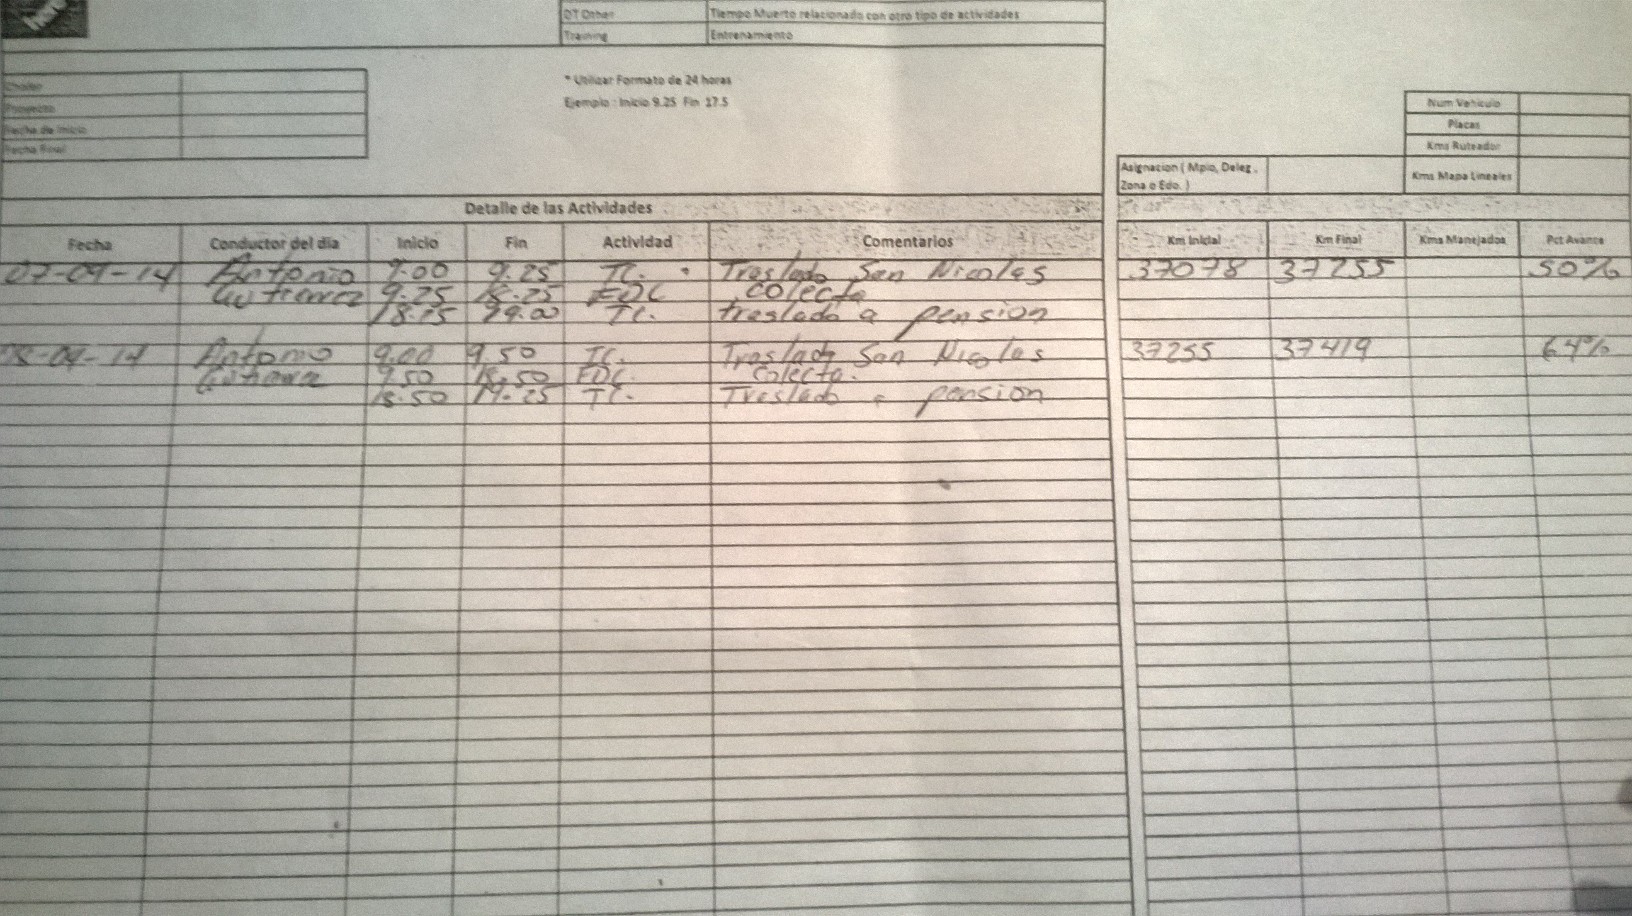 DT Other Tiempo Muerto relacionado con otro tipo de actividades
Training Entrenamiento
* Utilizar Formato de 24 horas
Ejemplo : Inicio 9.25 Fin 17.5
Chofer
Proyecto
Fecha de Inicio
Fecha Final
Num Vehiculo
Placas
Kms Ruteador
Kms Mapa Lineales
Asignacion ( Mpio, Deleg ,
Zona o Edo. )
Detalle de las Actividades
Fecha Conductor del día Inicio Fin Actividad Comentarios Km Inicial Km Final Kms Manejados Pct Avance
07-04-14 Antonio 9.00 9.25 TC. Traslado San Nicolas 37078 37255 50%
Gutierrez 9.25 18.25 FDC colecta
18.25 19.00 TC. traslado a pension
08-04-14 Antonio 9.00 9.50 TC. Traslado San Nicolas 37255 37419 64%
9.50 18.50 FDC. Colecta.
18.50 19.25 TC. Traslado a pension